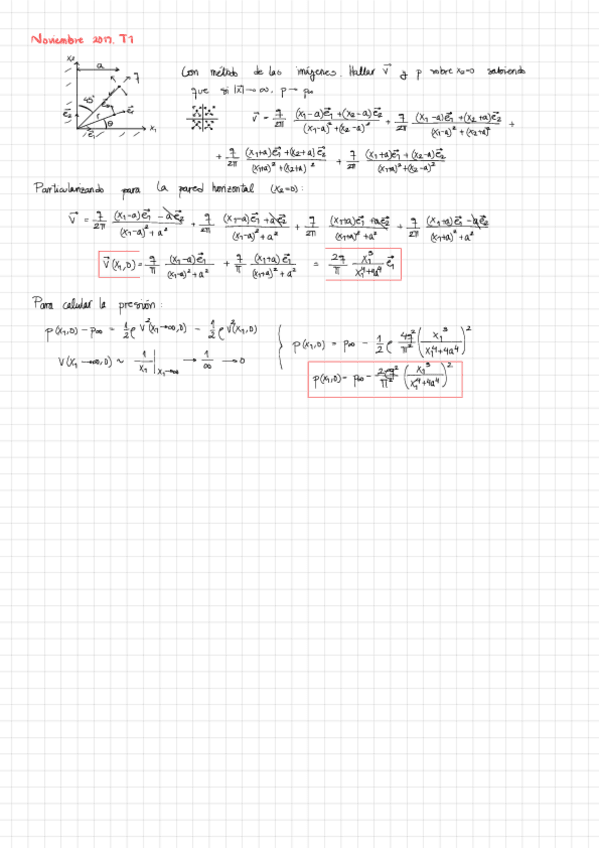 Noviembre 2017. T1
x₂ a q 45° r θ e⃗₂ e⃗₁ x₁
Con método de las imágenes. Hallar v⃗ y p sobre x₂=0 sabiendo
que si |x⃗| → ∞, p → p∞
v⃗ = q/2π ((x₁-a)e⃗₁+(x₂-a)e⃗₂)/((x₁-a)²+(x₂-a)²) + q/2π ((x₁-a)e⃗₁+(x₂+a)e⃗₂)/((x₁-a)²+(x₂+a)²) +
+ q/2π ((x₁+a)e⃗₁+(x₂+a)e⃗₂)/((x₁+a)²+(x₂+a)²) + q/2π ((x₁+a)e⃗₁+(x₂-a)e⃗₂)/((x₁+a)²+(x₂-a)²)
Particularizando para la pared horizontal (x₂=0):
v⃗ = q/2π ((x₁-a)e⃗₁-ae⃗₂)/((x₁-a)²+a²) + q/2π ((x₁-a)e⃗₁+ae⃗₂)/((x₁-a)²+a²) + q/2π ((x₁+a)e⃗₁+ae⃗₂)/((x₁+a)²+a²) + q/2π ((x₁+a)e⃗₁-ae⃗₂)/((x₁+a)²+a²)
v⃗(x₁,0) = q/π (x₁-a)e⃗₁/((x₁-a)²+a²) + q/π (x₁+a)e⃗₁/((x₁+a)²+a²) = 2q/π x₁³/(x₁⁴+4a⁴) e⃗₁
Para calular la presión:
p(x₁,0) - p∞ = 1/2 ρ v²(x₁→∞,0) - 1/2 ρ v²(x₁,0)
v(x₁→∞,0) ~ 1/x₁ |x₁→∞ → 1/∞ → 0
p(x₁,0) = p∞ - 1/2 ρ 4q²/π² (x₁³/(x₁⁴+4a⁴))²
p(x₁,0) = p∞ - 2ρq²/π² (x₁³/(x₁⁴+4a⁴))²